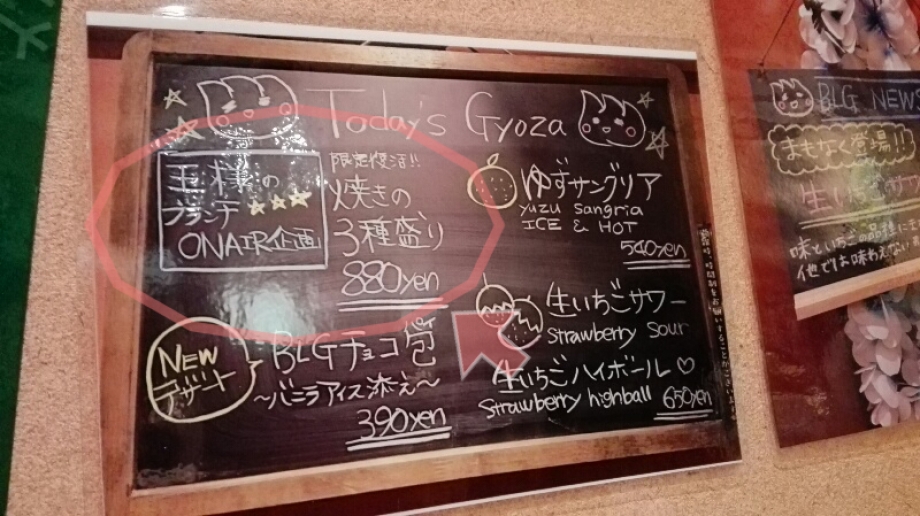 Today's Gyoza
王様の
ブランチ
ONAIR企画
限定復活!!
焼きの
3種盛り
880yen
NEW
デザート
BLGチョコ包
~バニラアイス添え~
390yen
ゆずサングリア
yuzu sangria
ICE & HOT
540yen
生いちごサワー
strawberry sour
生いちごハイボール♡
strawberry highball 650yen
BLG NEWS
まもなく登場!!
生いちご
味といちごの品種に
他では味わえない